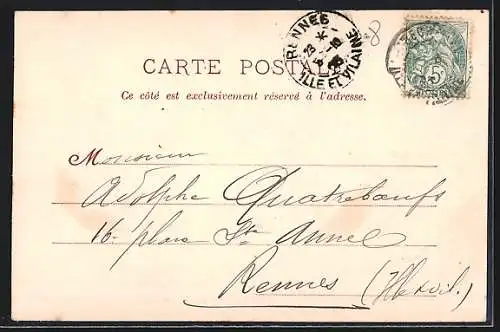 RENNES
ILLE ET VILAINE
8
CARTE POSTALE
Ce côté est exclusivement réservé à l'adresse.
Monsieur
Adolphe Quatreboeufs
16 place Ste Anne
Rennes (Ille et Vil.)